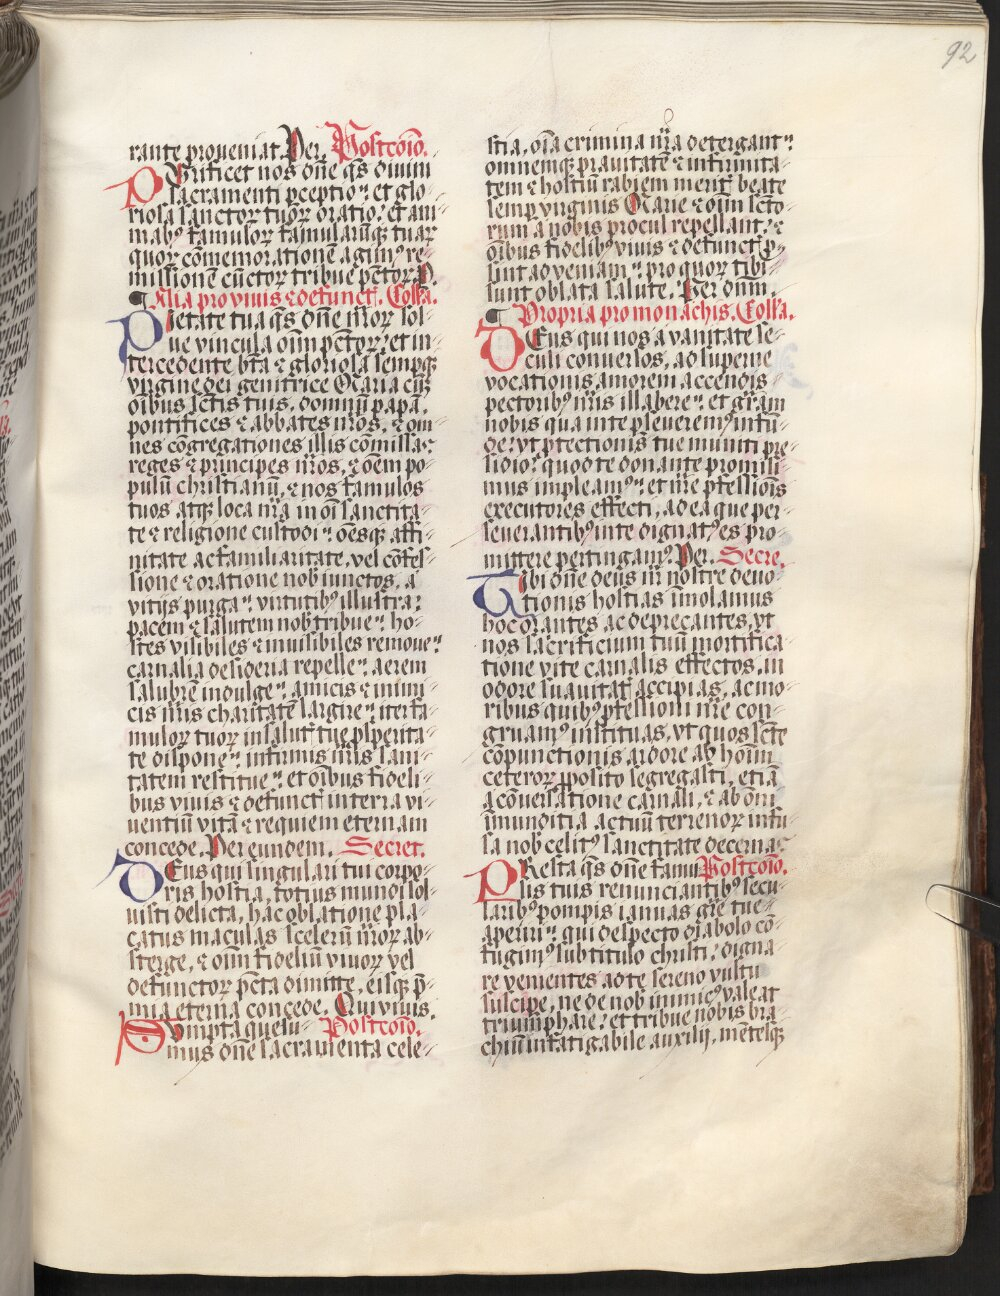 92
rante proueniat. Per. Postcōio.
PUrificet nos dn̄e q̄s diuini
sacramenti p̄ceptio: et glo-
riosa sanctoꝝ tuoꝝ oratio: et ani-
mabꝰ famuloꝝ famularūqꝫ tuaꝝ
quoꝝ cōmemorationē agimꝰ re-
missionē cūctoꝝ tribue pctōꝝ. P.
¶ Alia pro viuis ⁊ defunct̄. Coll̄a.
PIetate tua q̄s dn̄e nr̄oꝝ sol-
ue vincula oīm pctōꝝ: et in-
tercedente bt̄a ⁊ gloriosa semꝑqꝫ
virgine dei genitrice Maria cū
oībus sctīs tuis, domnū papā,
pontifices ⁊ abbates nr̄os, ⁊ om-
nes cōgregationes illis cōmissas:
reges ⁊ principes nr̄os, ⁊ oēm po-
pulū christianū, ⁊ nos famulos
tuos atqꝫ loca nr̄a in oī sanctita-
te ⁊ religione custodi: oēsqꝫ affi-
nitate ac familiaritate, vel cōfes-
sione ⁊ oratione nob̄ iunctos, a
vitijs purga: virtutibꝰ illustra:
pacem ⁊ salutem nob̄ tribue: ho-
stes visibiles ⁊ inuisibiles remoue:
carnalia desideria repelle: aerem
salubrē indulge: amicis ⁊ inimi-
cis nr̄is charitatē largire: iter fa-
muloꝝ tuoꝝ in salut̄ tue ꝓsꝑita-
te dispone: infirmis nr̄is sani-
tatem restitue: et oībus fideli-
bus viuis ⁊ defunct̄ in terra vi-
uentiū vitā ⁊ requiem eternam
concede. Per eundem. Secret.
DEus qui singulari tui corpo-
ris hostia, totius mundi sol-
uisti delicta, hac oblatione pla-
catus maculas scelerū nr̄oꝝ ab-
sterge, ⁊ oīm fideliū viuoꝝ vel
defunctoꝝ pctā dimitte, eisqꝫ p̄-
mia eterna concede. Qui viuis.
SUmpta quesu- Postcōio.
mus dn̄e sacramenta cele-
stia, oīa crimina nr̄a detergant:
omnemqꝫ prauitatē ⁊ infirmita-
tem ⁊ hostiū rabiem merit̄ beate
semꝑ virginis Marie ⁊ oīm scto-
rum a nobis procul repellant: ⁊
oībus fidelibꝰ viuis ⁊ defunct̄ ꝓ-
sint ad veniam: pro quoꝝ tibi
sunt oblata salute. Per dnm.
¶ Propria pro monachis. Coll̄a.
DEus qui nos a vanitate se-
culi conuersos, ad superne
vocationis amorem accendis
pectoribꝰ nr̄is illabere: et gr̄am
nobis qua in te ꝑseueremꝰ infū-
de: vt ꝓtectionis tue muniti pre-
sidio: quod te donante promisi-
mus impleamꝰ: et nr̄e ꝓfessiōis
executores effecti, ad ea que per-
seuerantibꝰ in te dignatꝰ es pro-
mittere pertingamꝰ. Per. Secre.
TIbi dn̄e deus nr̄ nostre deuo-
tionis hostias īmolamus
hoc orantes ac deprecantes, vt
nos sacrificium tuū mortifica-
tione vite carnalis effectos, in
odore suauitat̄ accipias, ac mo-
ribus quibꝰ ꝓfessioni nr̄e con-
gruamꝰ instituas, vt quos scte
cōpunctionis ardore ab hoīm
ceteroꝝ ꝓposito segregasti, etiā
a cōuersatione carnali, ⁊ ab omī
īmunditia actuū terrenoꝝ infu-
sa nob̄ celitꝰ sanctitate decernas.
PResta q̄s dn̄e famu- Postcōio.
lis tuis renunciantibꝰ secu-
laribꝰ pompis ianuas gr̄e tue
aperiri: qui despecto diabolo cō-
fugimꝰ sub titulo christi: digna-
re venientes ad te sereno vultu
suscipe, ne de nob̄ inimicꝰ valeat
triumphare: et tribue nobis bra-
chiū infatigabile auxilij, mentesqꝫ